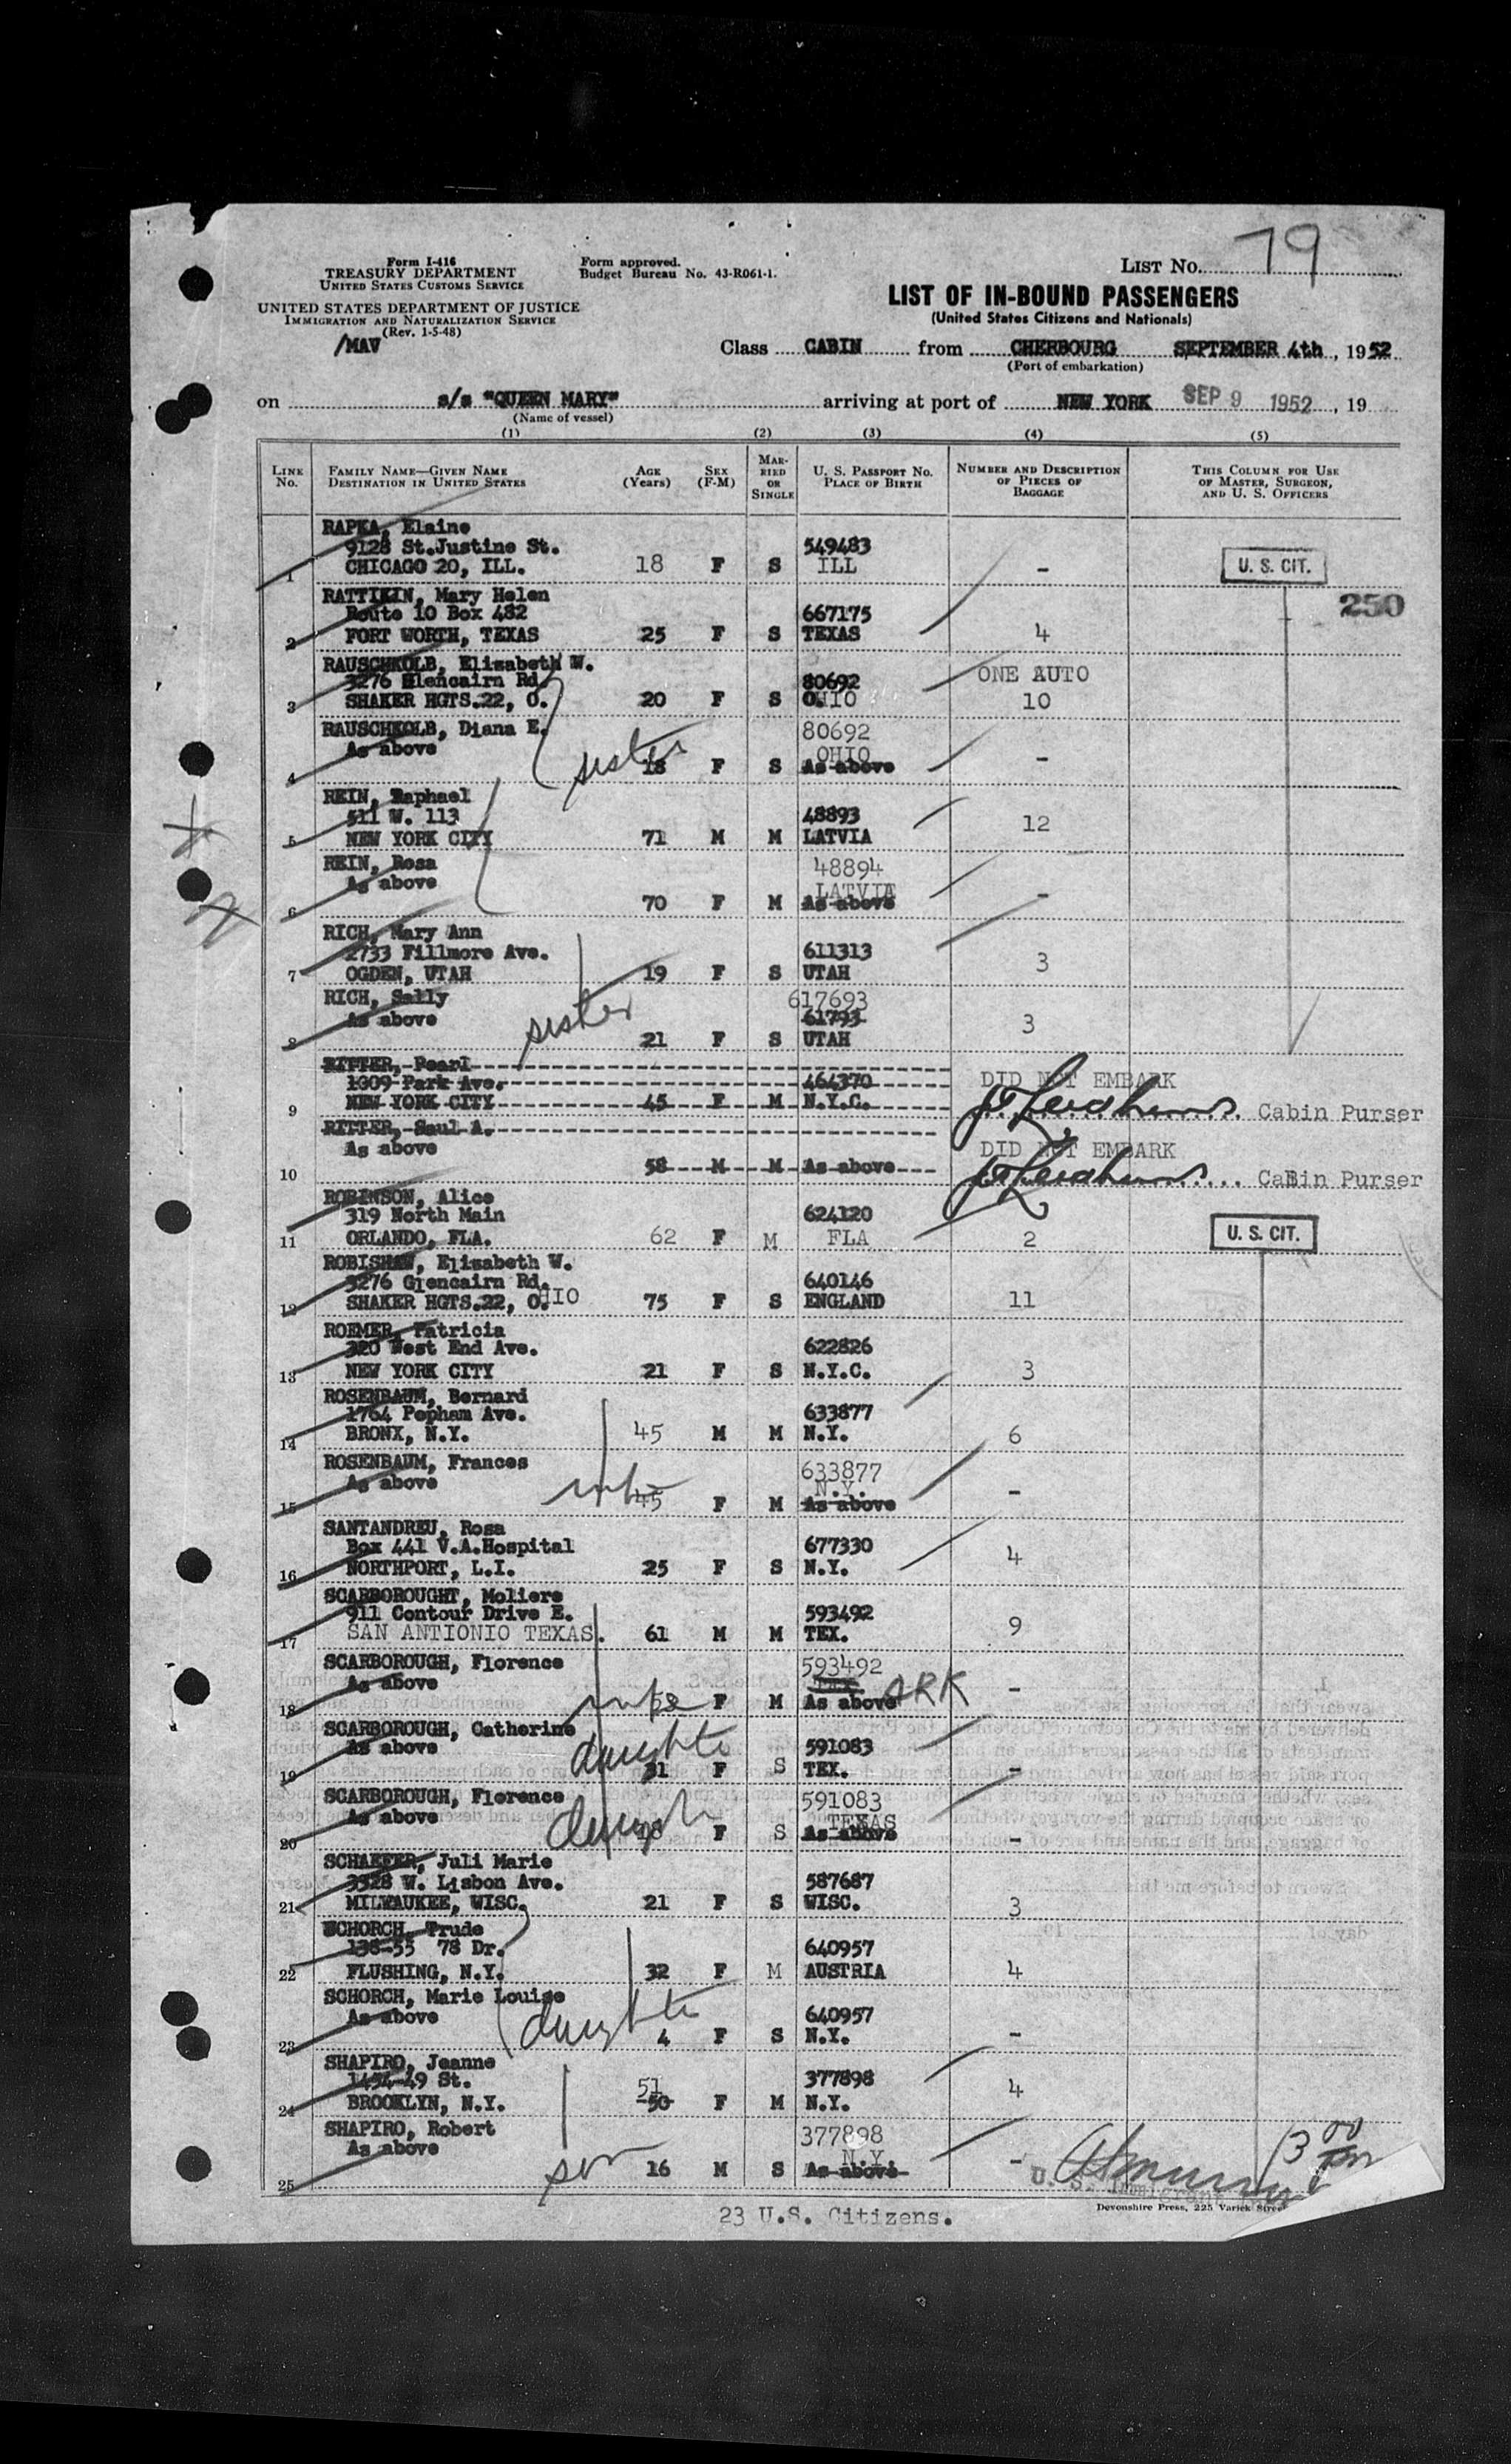 Form I-416
TREASURY DEPARTMENT
UNITED STATES CUSTOMS SERVICE
UNITED STATES DEPARTMENT OF JUSTICE
IMMIGRATION AND NATURALIZATION SERVICE
(Rev. 1-5-48)
/MAV
Form approved.
Budget Bureau No. 43-R061-1.
LIST No. 79
LIST OF IN-BOUND PASSENGERS
(United States Citizens and Nationals)
Class CABIN from CHERBOURG SEPTEMBER 4th, 1952
(Port of embarkation)
on s/s "QUEEN MARY" arriving at port of NEW YORK SEP 9 1952, 19
(Name of vessel)
(1) (2) (3) (4) (5)
LINE No. FAMILY NAME—GIVEN NAME DESTINATION IN UNITED STATES AGE (Years) SEX (F-M) MARRIED OR SINGLE U. S. PASSPORT No. PLACE OF BIRTH NUMBER AND DESCRIPTION OF PIECES OF BAGGAGE THIS COLUMN FOR USE OF MASTER, SURGEON, AND U. S. OFFICERS
RAPKA, Elaine
9128 St.Justine St. 549483
1 CHICAGO 20, ILL. 18 F S ILL - U. S. CIT.
250
RATTIKIN, Mary Helen
Route 10 Box 482 667175
2 FORT WORTH, TEXAS 25 F S TEXAS 4
RAUSCHKOLB, Elizabeth W.
3276 Glencairn Rd. 80692 ONE AUTO
3 SHAKER HGTS.22, O. 20 F S OHIO 10
RAUSCHKOLB, Diana E. 80692
As above sister OHIO
4 18 F S As above -
REIN, Raphael
511 W. 113 48893
5 NEW YORK CITY 71 M M LATVIA 12
REIN, Rosa 48894
As above LATVIA
6 70 F M As above -
RICH, Mary Ann
2733 Fillmore Ave. 611313
7 OGDEN, UTAH 19 F S UTAH 3
RICH, Sally 617693
As above sister 61793
8 21 F S UTAH 3
RITTER, Pearl
1009 Park Ave. 464370 DID NOT EMBARK
9 NEW YORK CITY 45 F M N.Y.C. Cabin Purser
RITTER, Saul A.
As above DID NOT EMBARK
10 58 M M As above Cabin Purser
ROBINSON, Alice
319 North Main 624120
11 ORLANDO, FLA. 62 F M FLA 2 U. S. CIT.
ROBISHAW, Elizabeth W.
3276 Glencairn Rd. 640146
12 SHAKER HGTS.22, O.HIO 75 F S ENGLAND 11
ROEMER, Patricia
320 West End Ave. 622826
13 NEW YORK CITY 21 F S N.Y.C. 3
ROSENBAUM, Bernard
1764 Popham Ave. 633877
14 BRONX, N.Y. 45 M M N.Y. 6
ROSENBAUM, Frances 633877
As above wife N.Y.
15 45 F M As above -
SANTANDREU, Rosa
Box 441 V.A.Hospital 677330
16 NORTHPORT, L.I. 25 F S N.Y. 4
SCARBOROUGHT, Moliere
911 Contour Drive E. 593492
17 SAN ANTIONIO TEXAS. 61 M M TEX. 9
SCARBOROUGH, Florence 593492
As above wife TEX.
18 F M As above ARK -
SCARBOROUGH, Catherine
As above daughter 591083
19 31 F S TEX. -
SCARBOROUGH, Florence 591083
As above daugh TEXAS
20 F S As above -
SCHAEFER, Juli Marie
3328 W. Lisbon Ave. 587687
21 MILWAUKEE, WISC. 21 F S WISC. 3
SCHORCH, Trude
138-55 78 Dr. 640957
22 FLUSHING, N.Y. 32 F M AUSTRIA 4
SCHORCH, Marie Louise
As above daughter 640957
23 4 F S N.Y. -
SHAPIRO, Jeanne
1454-49 St. 51 377898
24 BROOKLYN, N.Y. 50 F M N.Y. 4
SHAPIRO, Robert 377898
As above son N.Y.
25 16 M S As above -
U. S. Immigrant
Devonshire Press, 225 Varick Street
23 U.S. Citizens.